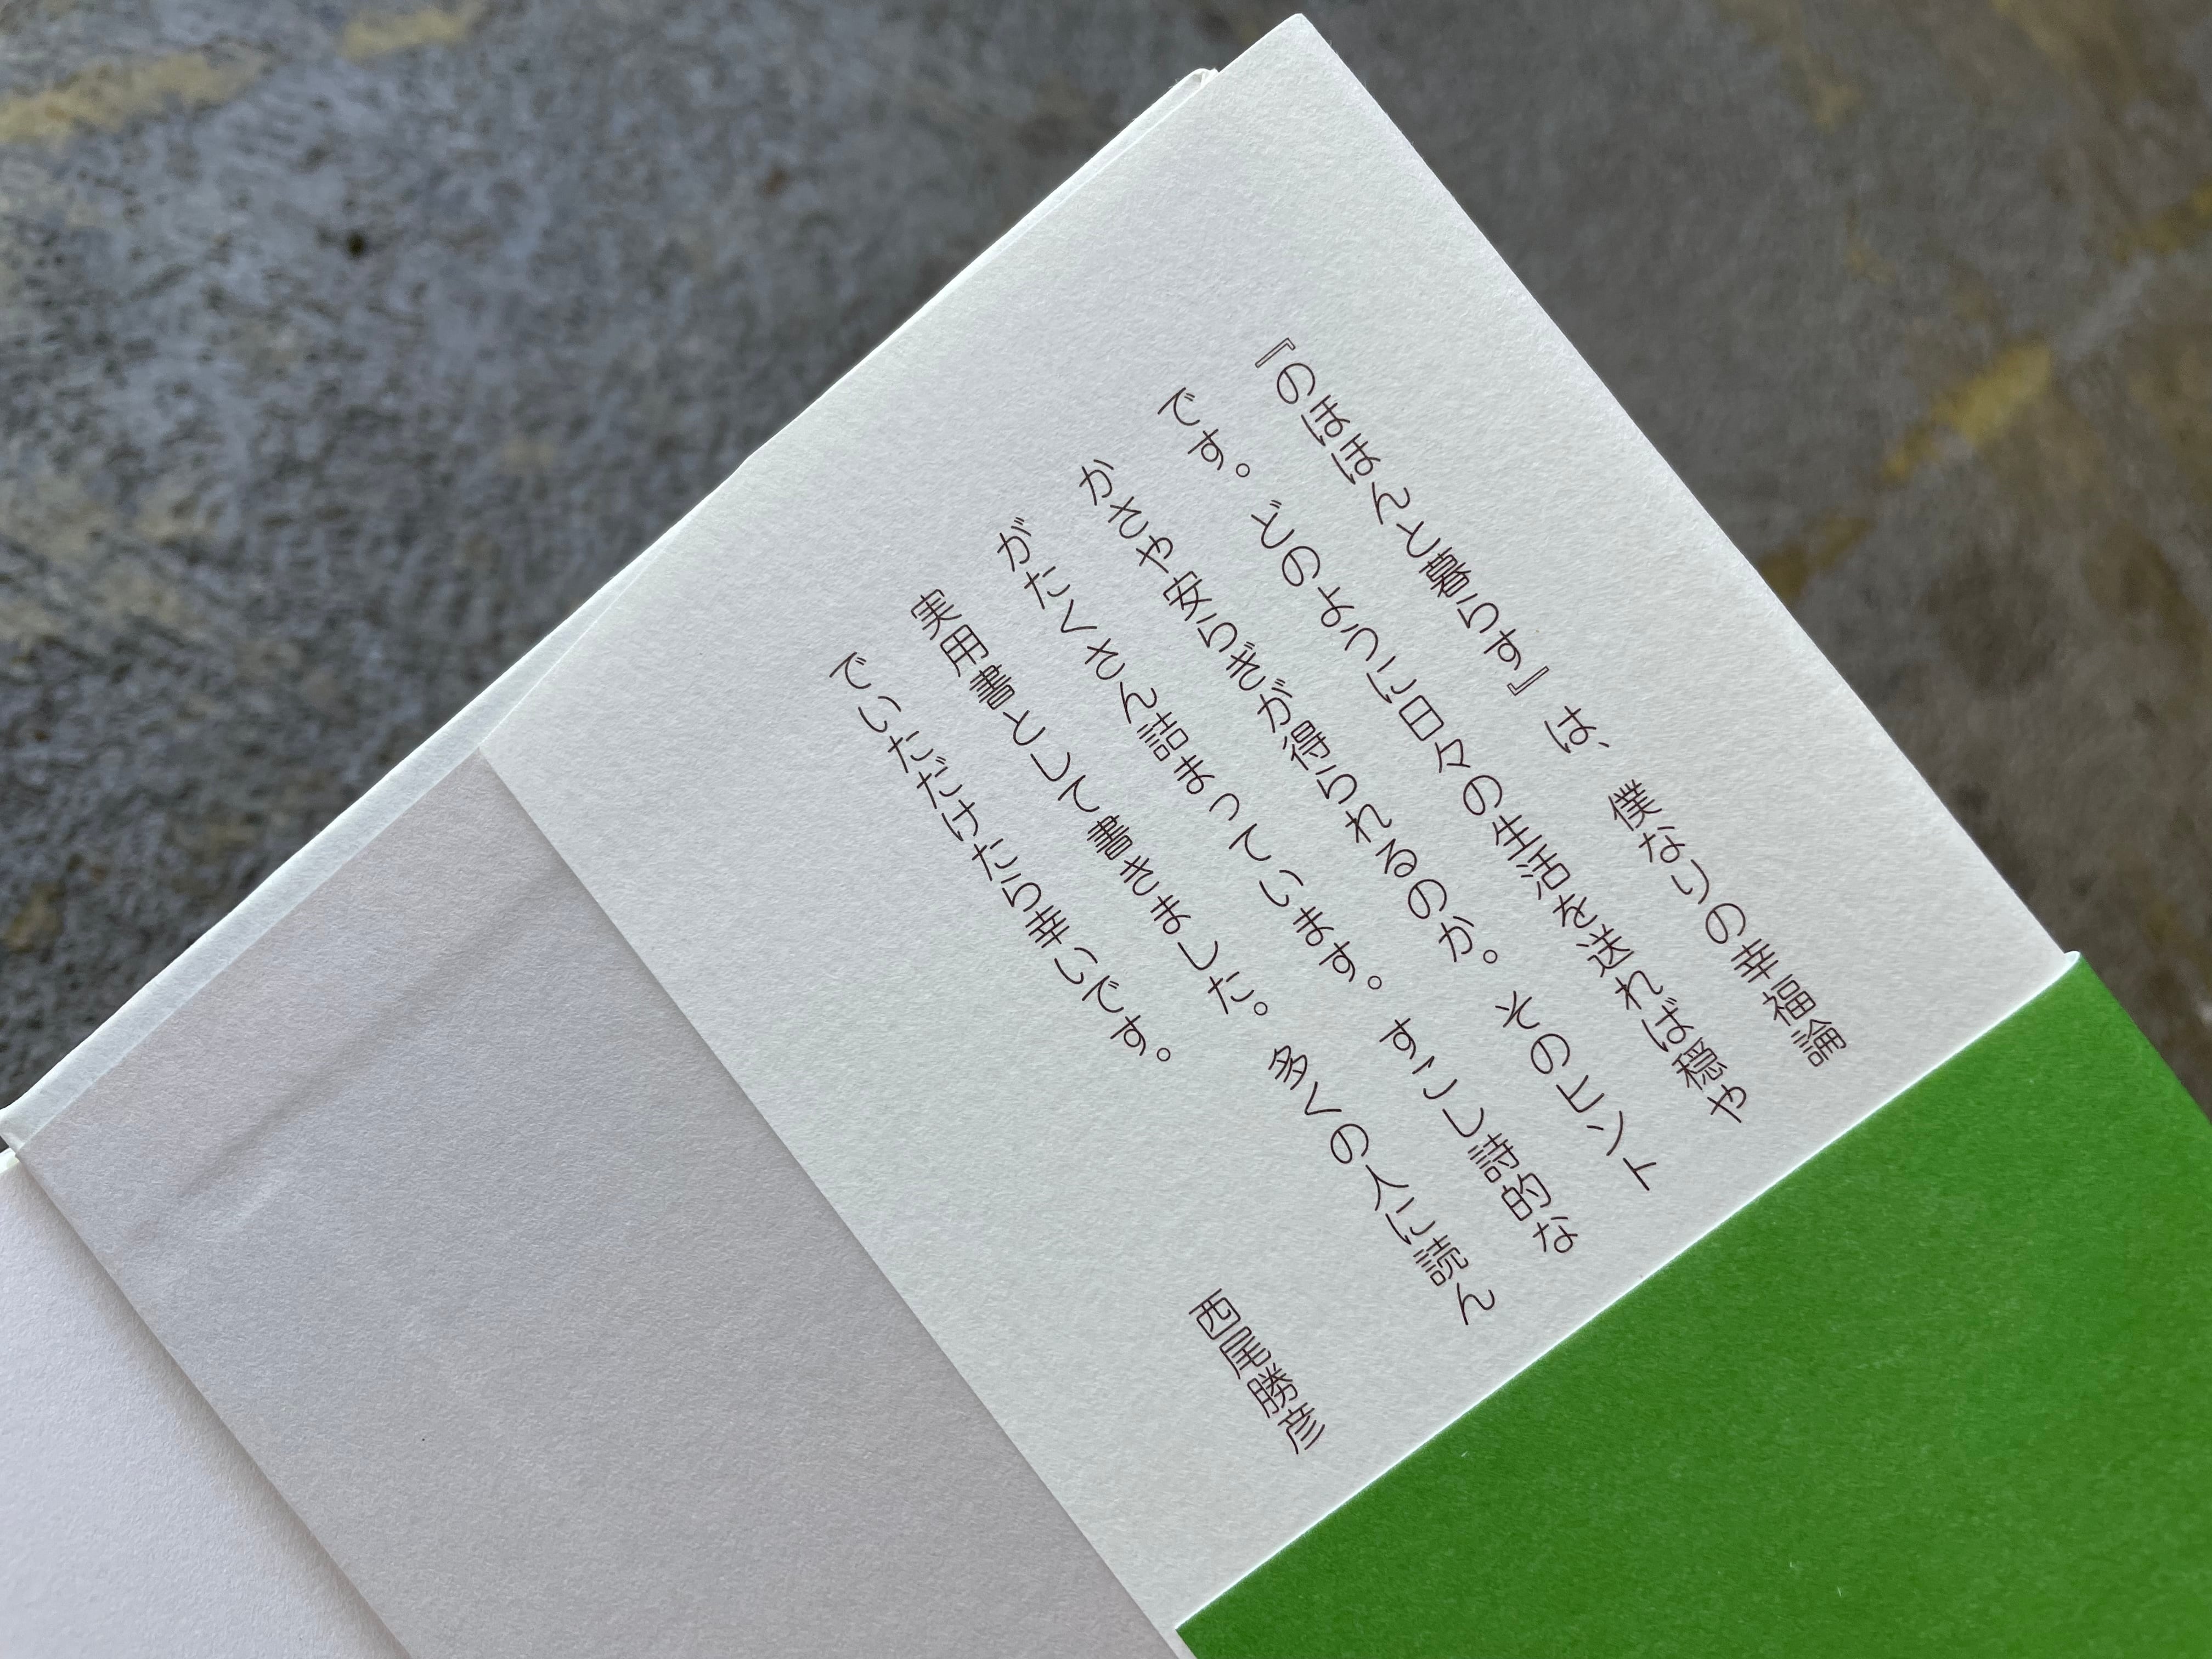 『のほほんと暮らす』は、僕なしの幸福論
です。どのように日々の生活を送れば穏や
かさや安らぎが得られるのか。そのヒント
がたくさん詰まっています。すこし詩的な
実用書として書きました。多くの人に読ん
でいただけたら幸いです。
西尾勝彦